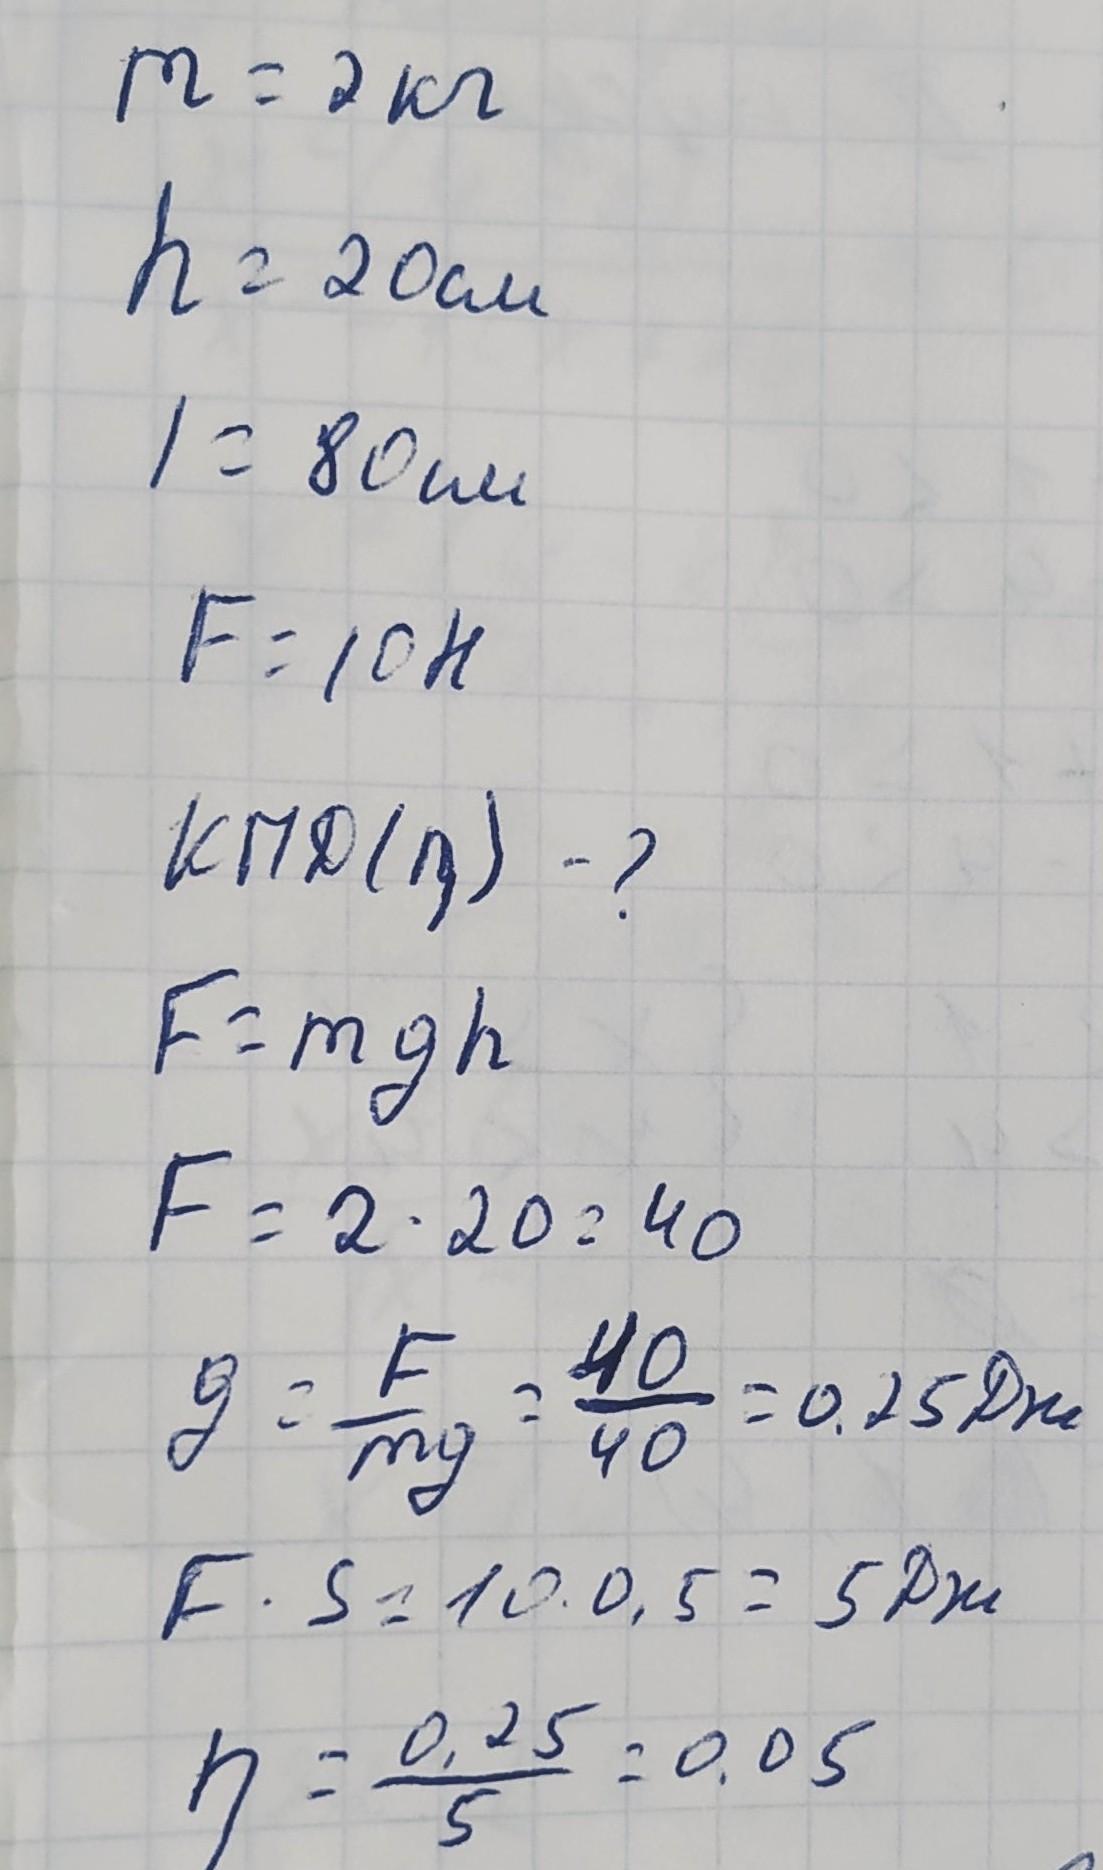 m = 2кг
h = 20см
l = 80см
F = 10Н
КПД(η) - ?
F = mgh
F = 2 · 20 = 40
g = F/mg = 40/40 = 0.25Дж
F · S = 10 · 0,5 = 5Дж
η = 0,25/5 = 0.05